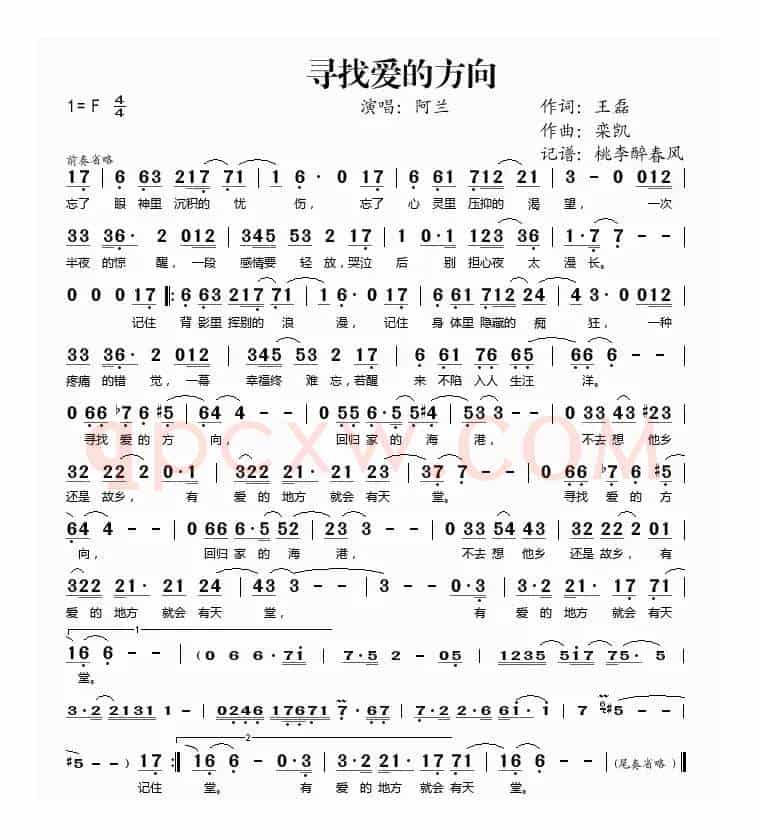 寻找爱的方向
1= F 4/4 演唱：阿兰 作词：王磊
作曲：栾凯
前奏省略 记谱：桃李醉春风
17 | 6 63 217 71 | 1 6· 0 17 | 6 61 712 21 | 3 - 0 012 |
忘了 眼 神里 沉积的 忧 伤， 忘了 心 灵里 压抑的 渴 望， 一次
33 36· 2 012 | 345 53 0 17 | 1 0·1 123 36 | 1·7 7 - - |
半夜 的惊 醒，一段 感情要 轻 放，哭泣 后 别 担心夜 太 漫长。
0 0 0 17 |: 6 63 217 71 | 1 6· 0 17 | 6 61 712 24 | 4 3· 0 012 |
记住 背 影里 挥别的 浪 漫，记住 身 体里 隐藏的 痴 狂，一种
33 36· 2 012 | 345 53 2 17 | 6 61 76 65 | 66 6 - - |
疼痛 的错 觉，一幕 幸福终 难 忘，若醒 来 不陷 入人 生汪 洋。
0 66 ♭76 ♯5 | 64 4 - - | 0 55 6·5 5♯4 | 53 3 - - | 0 33 43 ♯23 |
寻找 爱的 方 向， 回归 家的 海 港， 不去 想 他乡
32 22 2 0·1 | 322 21· 21 23 | 37 7 - - | 0 66 ♭76 ♯5 |
还是 故乡， 有 爱的 地方 就会 有天 堂。 寻找 爱的 方
64 4 - - | 0 66 6·5 52 | 23 3 - - | 0 33 54 43 | 32 22 2 01 |
向， 回归 家的 海 港， 不去 想 他乡 还是 故乡， 有
322 21· 21 24 | 43 3 - - | 3 - - 0·3 | 3·2 21· 17 71 |
爱的 地方 就会 有天 堂， 有 爱 的 地方 就会 有天
1
16 6 - - | (0 6 6·71 | 7·5 2 - 05 | 1235 517 75· 5 |
堂。
3·2 2131 1 - | 0246 17671 7·67 | 7·2 2·6 61·1 | 7 ♯5 - |
2
♯5 - -) 17 :| 16 6 - 0·3 | 3·2 21· 17 71 | 16 6 - - | (尾奏省略 ) ‖
记住 堂。 有 爱 的 地方 就会 有天 堂。
qpcxw.COM